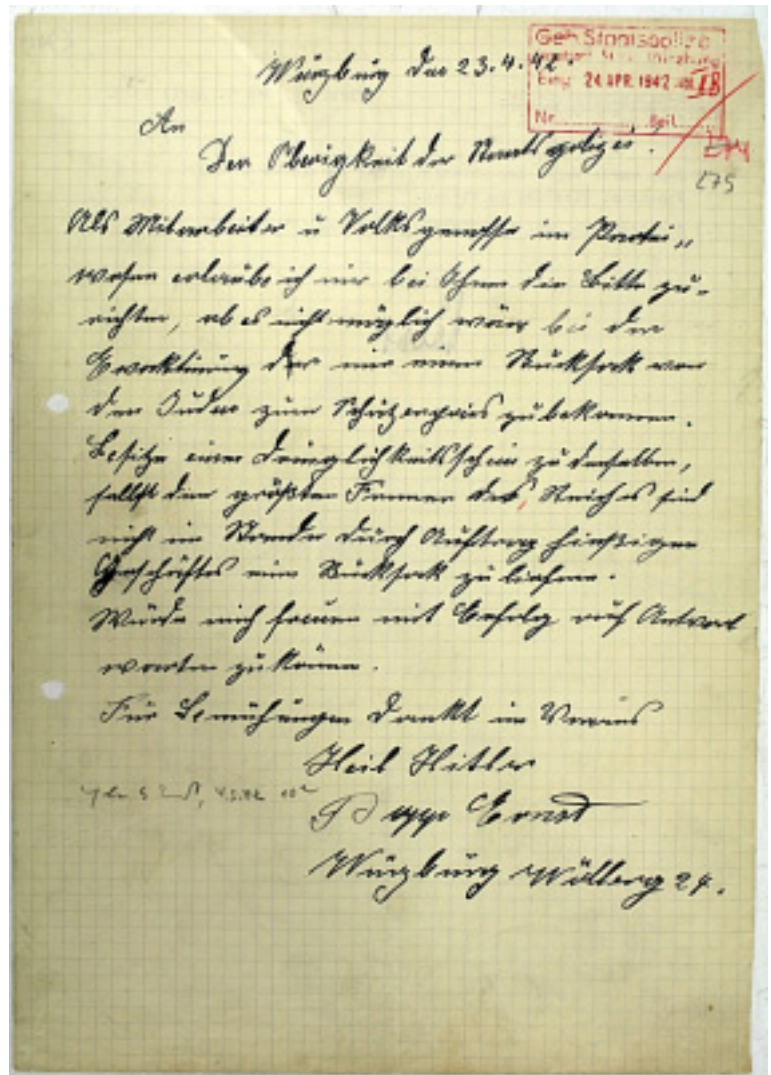 Geh. Staatspolizei
Eing. 24 APR. 1942 IB
Nr. Beil.
Würzburg den 23.4.42.
An
Der Oberigkeit der Staatspolizei.
274
275
Als Mitarbeiter u Volksgenosse im Partei„
wesen erlaube ich mir bei Ihnen die Bitte zu-
richten, ob es nicht möglich wäre bei der
der mir einen Rucksack von
den Juden zum Schätzenpreis zubekommen.
Besitze einen Dringlichkeitsschein zu denselben,
selbst die größten Firmen des Reiches sind
nicht im Stande durch Auftrag hießigen
Geschäftes ein Rucksack zu liefern.
Würde mich freuen mit Erfolg auf Antwort
warten zu können.
Für Bemühungen dankt im Voraus
Heil Hitler
Ernst
Würzburg